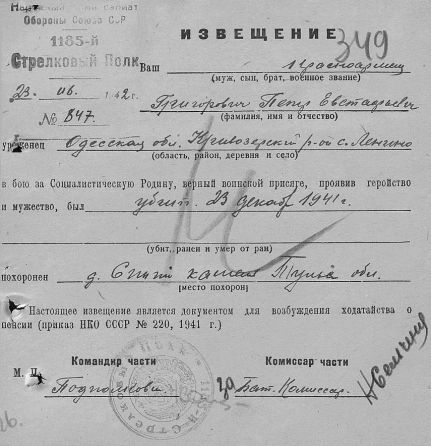 Народный Комиссариат
Обороны Союза ССР
1185-й
Стрелковый Полк
23 06. 1942 г.
№ 847
ИЗВЕЩЕНИЕ
349
Ваш красноармеец
(муж, сын, брат, военное звание)
Григорович Петр Евстафьевич
(фамилия, имя и отчество)
уроженец Одесская обл. Кривоозерский р-он с.
(область, район, деревня и село)
в бою за Социалистическую Родину, верный воинской присяге, проявив геройство
и мужество, был убит. 23 декабр 1941 г.
(убит, ранен и умер от ран)
похоронен д. Тульск обл.
(место похорон)
Настоящее извещение является документом для возбуждения ходатайства о
пенсии (приказ НКО СССР № 220, 1941 г.)
Командир части
Комиссар части
М. П.
Подполковн
Бат. Комиссар.